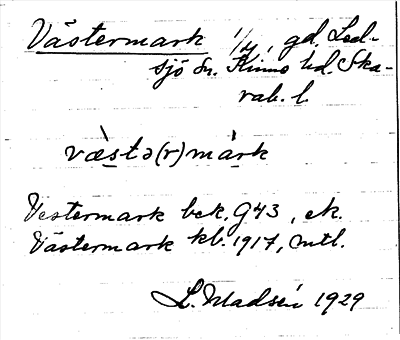 Västermark 1/4, gd. Led-
sjö sn. Kinne hd. Ska-
rab. l.
væ̀stə(r)màrk
Vestermark bek. G43, ek.
Västermark kb. 1917, mtl.
L. Madsén 1929